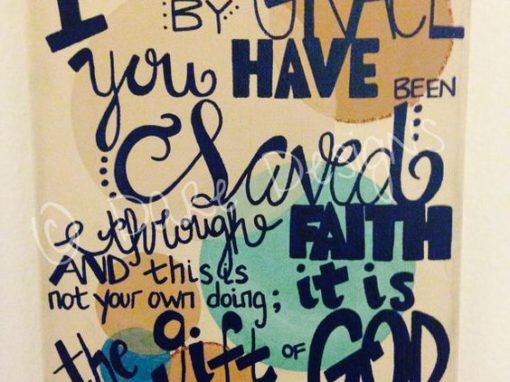 BY GRACE
you HAVE BEEN
Saved
through FAITH
AND this is
not your own doing; it is
the gift OF GOD
© Designs